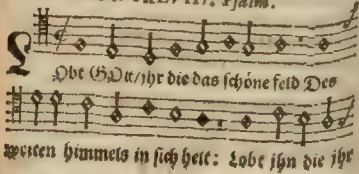 Psalm.
Lobt GOtt/jhr die das schöne feld Des
weiten himmels in sich helt: Lobt jhn die jhr